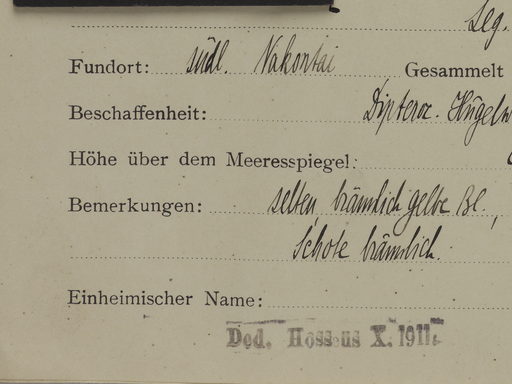 Leg.
Fundort: südl. Nakontai Gesammelt
Beschaffenheit: Dipteroc. Hügelw
Höhe über dem Meeresspiegel:
Bemerkungen: selten, bräunlich gelbe Bl.,
Schote bräunlich.
Einheimischer Name:
Ded. Hosseus X. 1911.